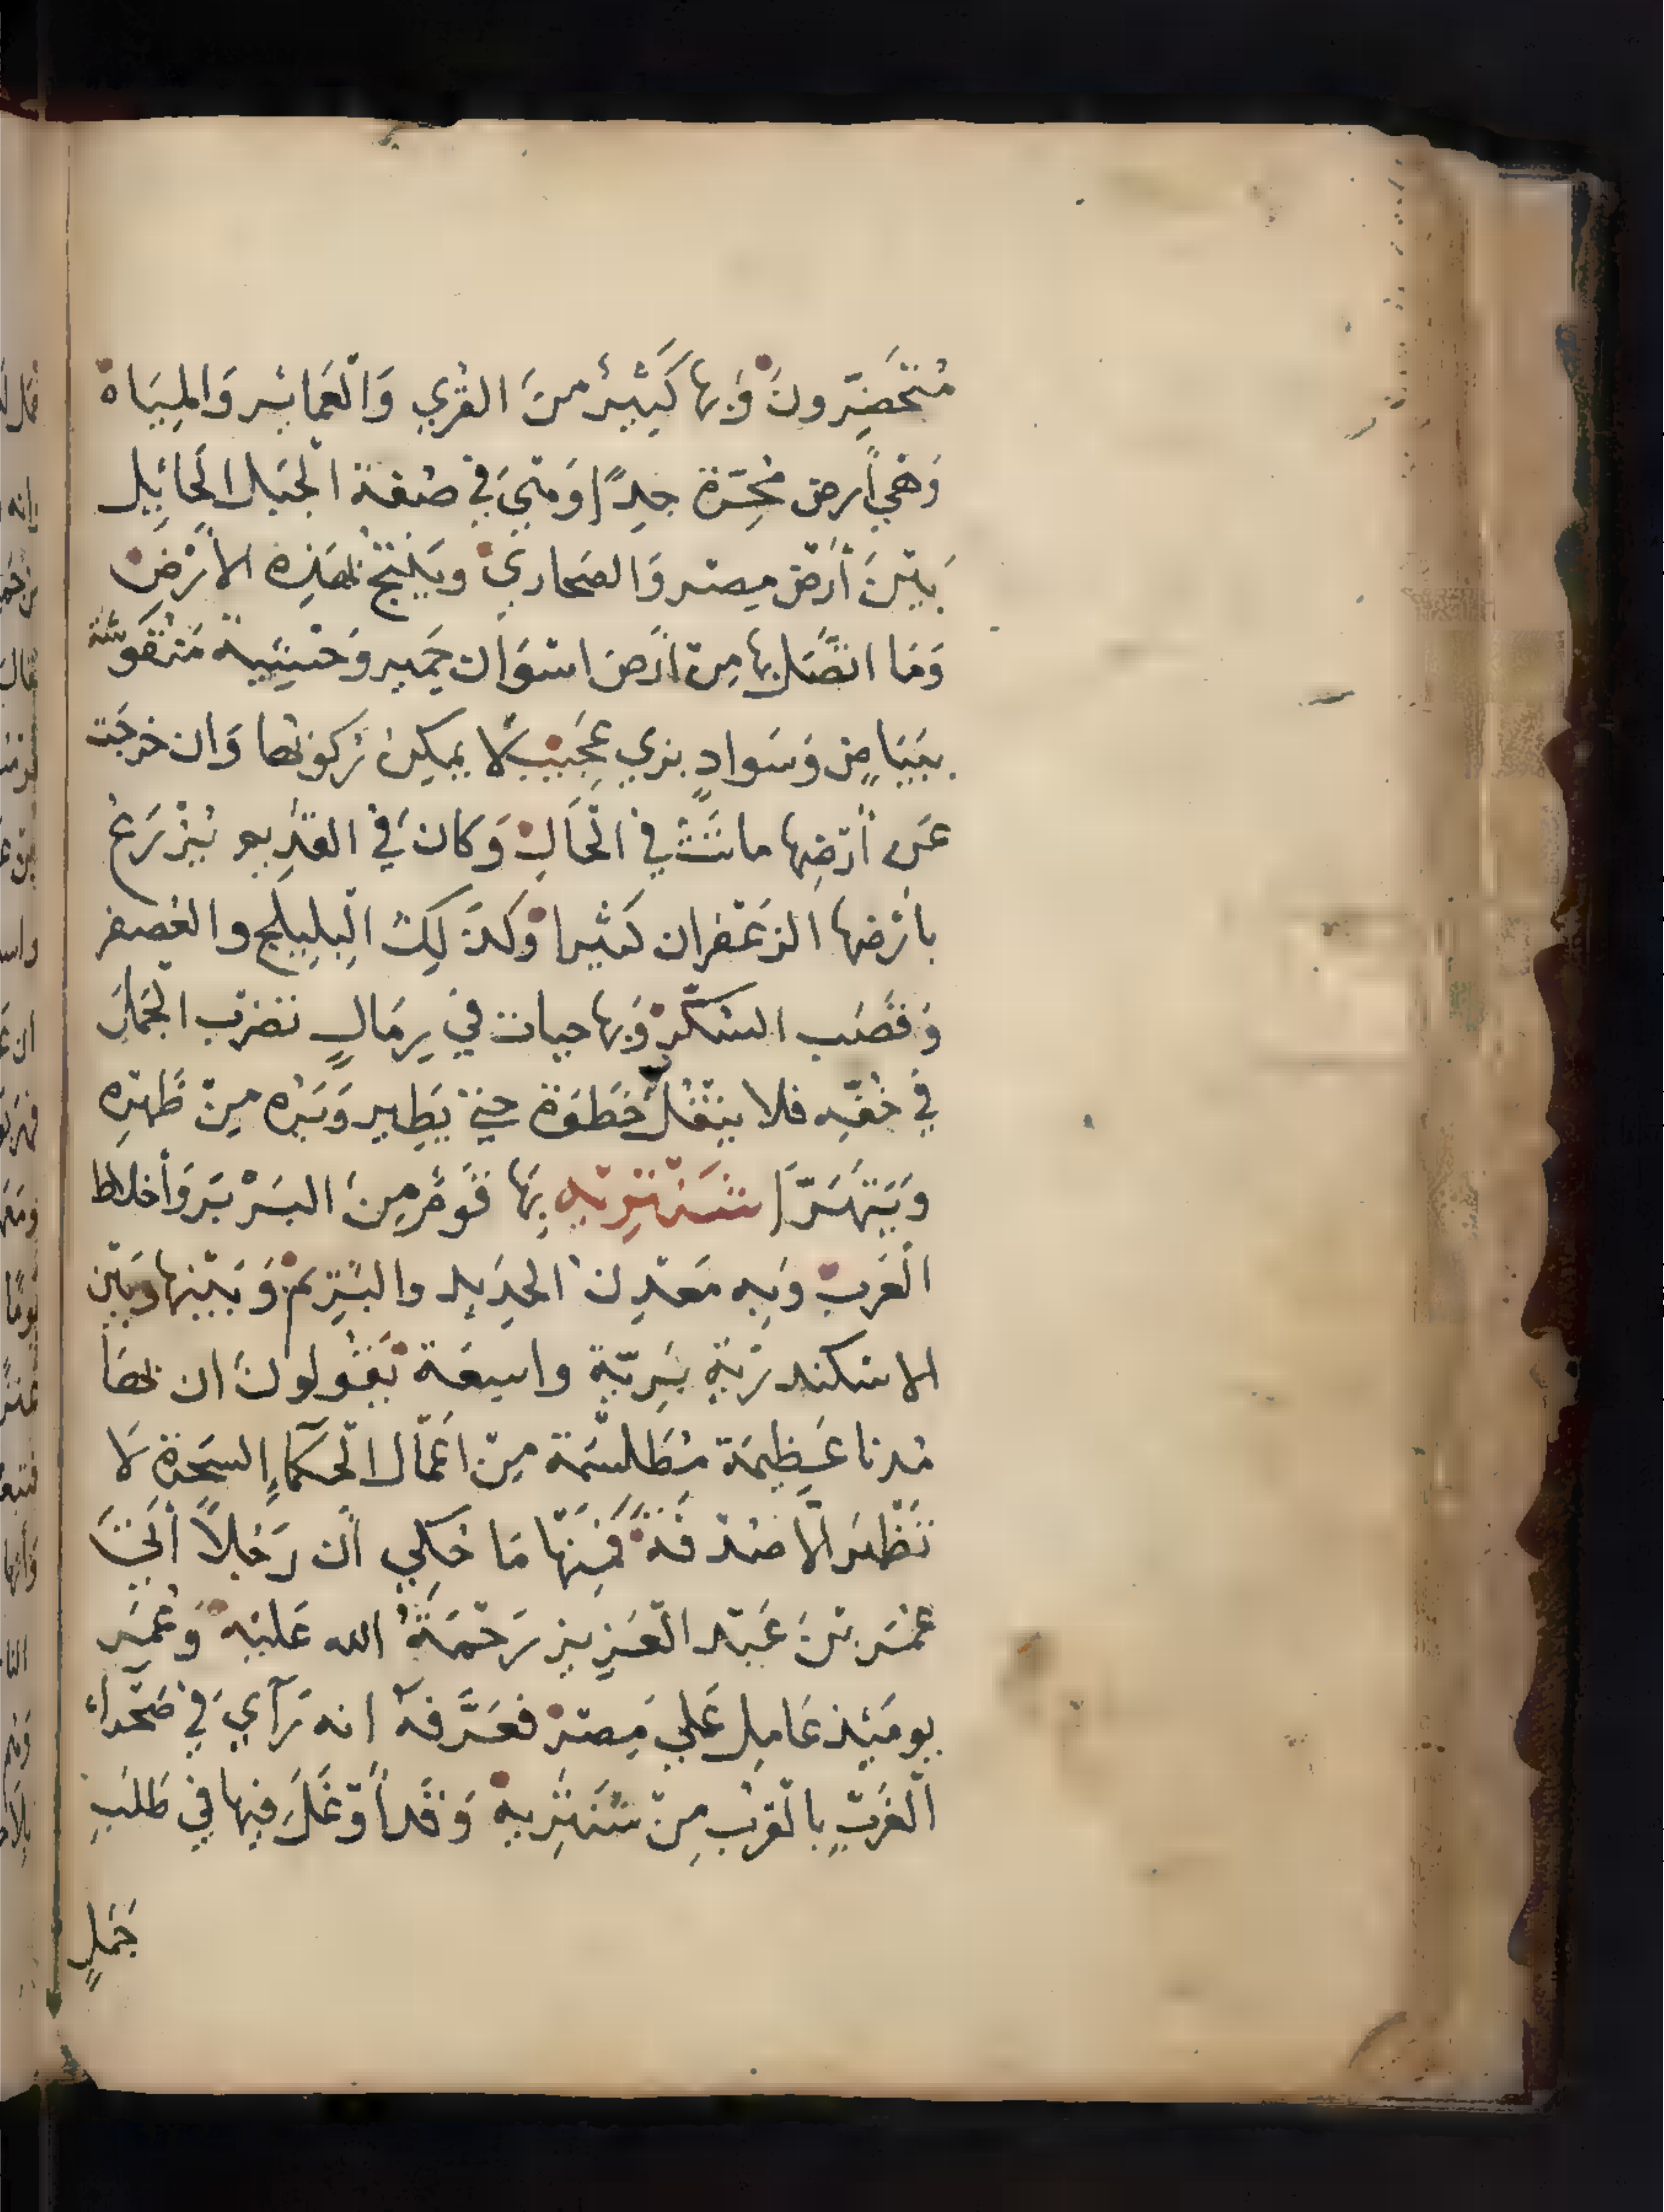 مُتَحَضِّرونَ وَبها كَثِيرٌ من القُري وَالْعَمائِر وَالمِيَاه
وَهِيَ أرض مُحِرّة جِدًّا وَهيَ فِي صفة الجَبَل الحائِل
بَيْنَ أرْض مِصْر وَالصَحاري وَيُنتِجُ بهَذِه الأَرْض
وَمَا اتصَل بهَا مِن أرْض اسْوَان حَمير وَحْشيَّة مَنْقوشَة
ببَيَاضٍ وَسَوادٍ بزي عَجِيبٍ لا يمكِن رُكُوبُها وَان خرجَت
عَن أرْضِها ماتَتْ في الْحَالِ وَكان فِي القَدِيم يُزْرَعُ
بأرْضها الزعْفران كَثيرا وَكَذَلِكَ الْبلِيلَج والعُصفر
وَقَصَب السُّكَّر وَبها حيات في رِمَالٍ تَضرب الجَمَل
في خُفّه فلا يَنْقُل خَطوَة حتي يَطِير وَبَرُه مِنْ ظَهْرِه
وَيَتهَرّا شَنْتَرِيّه بِهَا قَوْمٌ مِنَ البَرْبَر وَأخلاط
الْعَرب وَبِه مَعْدِن الحَدِيد والبِرِيم وَبَيْنها وَبَيْن
الاسْكندريّة بَرِيّة واسِعَة يَقُولونَ ان بها
مُدنا عَظِيمَة مُطَلسَمَة مِنْ اعْمَال الْحُكَماءِ السَحَرة لَا
تَظْهَر الّا صُدْفَةً فَمِنْهَا مَا حُكِي أن رَجُلاً أتَي
عُمَر بْنَ عَبْد الْعَزِيز رَحْمَةُ الله عَليْه وَعُمَر
يومَئِذ عَامِل عَلي مِصْر فعَرَّفَهُ انه رَآي في صَحْراءِ
الْغَرْبِ بالْقرب مِنْ شَنْتَريه وَقَد أوْغَلَ فيها في طَلَبِ
جَمَلٍ